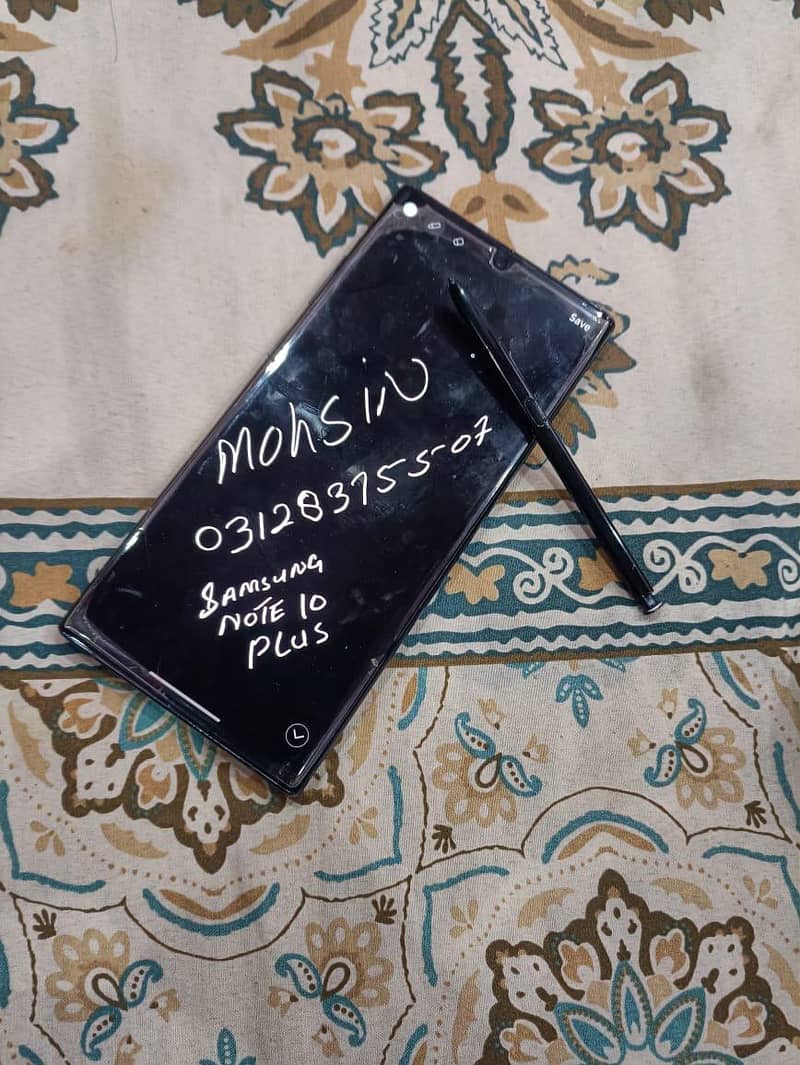 Save
Mohsin
03128375507
SAMSUNG
NOTE 10
PLUS